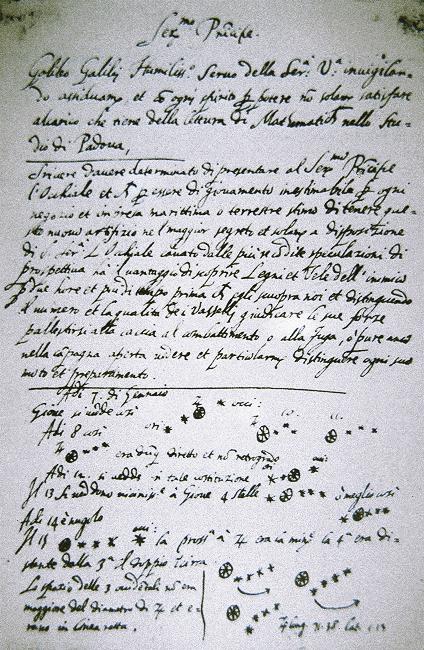 Ser.mo Principe.
Galileo Galilej Humiliss.o Servo della Ser.a V.a invigilan-
do assiduam.te et cõ ogni spirito p potere nõ solam.te satisfare
al carico che tiene della lettura di Mathematich.e nello Stu-
dio di Padova,
Scrivere d'avere determinato di presentare al Ser.mo Pricipe
l'Ochiale et p essere di giovamento inestimabile p ogni
negozio et impresa marittima o terrestre stimo di tenere que-
sto nuovo artifizio ne'l maggior segreto et solam.te a disposizione
di S. Ser.ta L'Ochiale cavato dalle più recõdite speculazioni di
prospettiva hà il vantaggio di scoprire Legni et Vele dell'inimico
p due hore et più di tempo prima ch egli scuopra noi et distinguendo
il numero et la qualità de i Vasselli giudicare le sue forze
pallestirsi alla caccia al combattimento o alla fuga, o pure anco
nella cãpagna aperta vedere et particolarm.te distinguere ogni suo
moto et preparamento.
Adi 7. di Gennaio
Giove si vedde cosi
Adi 8 cosi ori:
era dũq diretto et nõ retrogrado
Adi 12. si vedde in tale costituzione
Il 13 si veddono vicinissi.e à Giove 4 stelle ò meglio cosi
Adi 14 è nugolo
Il 15 la pross.a à ♃ era la min.e la 4.a era di-
stante dalla 3.a il doppio circa
Lo spazio delle 3 occidentali nõ era
maggiore del diametro di ♃ et e-
rano in linea retta.